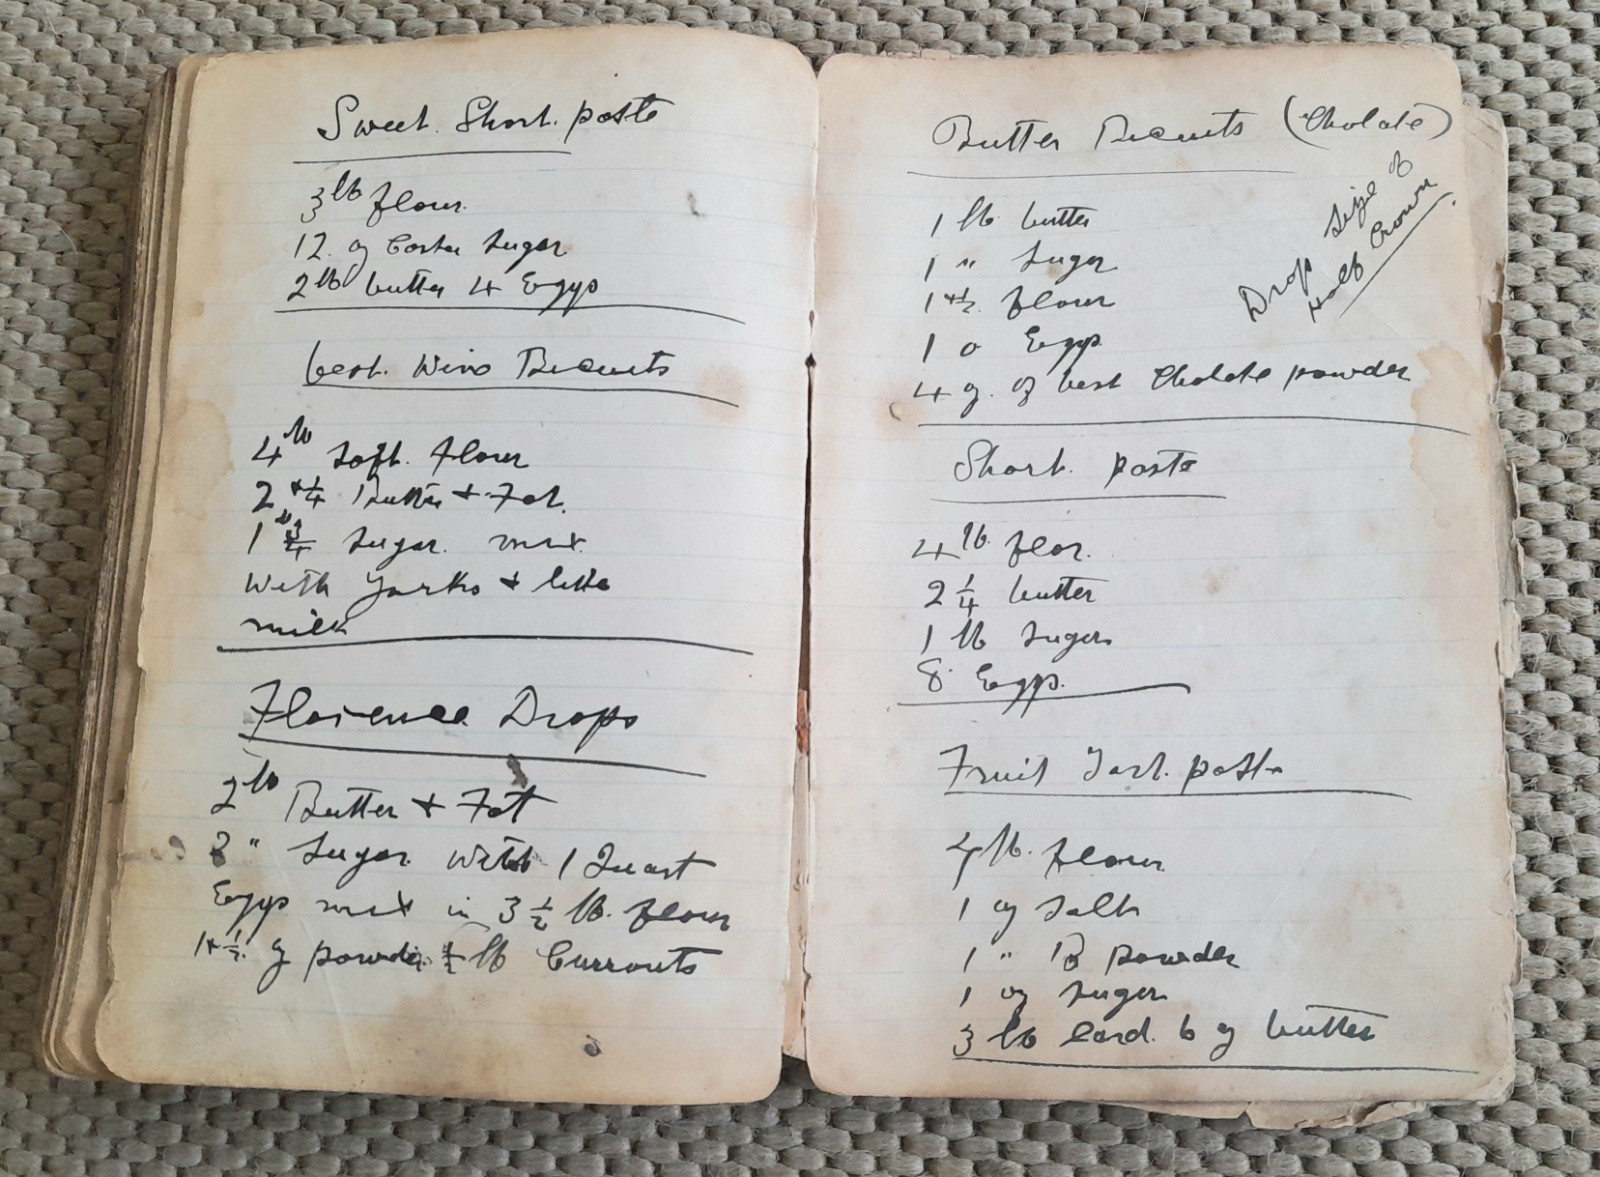 Sweet. Short. paste
3 lb flour.
12. oz Caster Sugar
2 lb butter 4 Eggs
best. Wine Biscuits
4 lb Soft. flour
2 + 1/4 Butter + Fat.
1 lb 3/4 Sugar. mix.
With Yorks + little
milk
Florence Drops
2 lb Butter + Fat
2 " Sugar With 1 Quart
Eggs mix in 3 1/2 lb. flour
1 + 1/2. oz powder 1/2 lb Currants
Butter Biscuits (Cholate)
Drop Size of
Half Crown
1 lb butter
1 " Sugar
1 + 1/2 flour
10 Eggs
4 oz. of best Cholate powder
Short. paste
4 lb. flor.
2 1/4 butter
1 lb Sugar
8 Eggs.
Fruit Tart. paste
4 lb. flour
1 oz Salt
1 " B powder
1 oz Sugar
3 lb lard. 6 oz butter